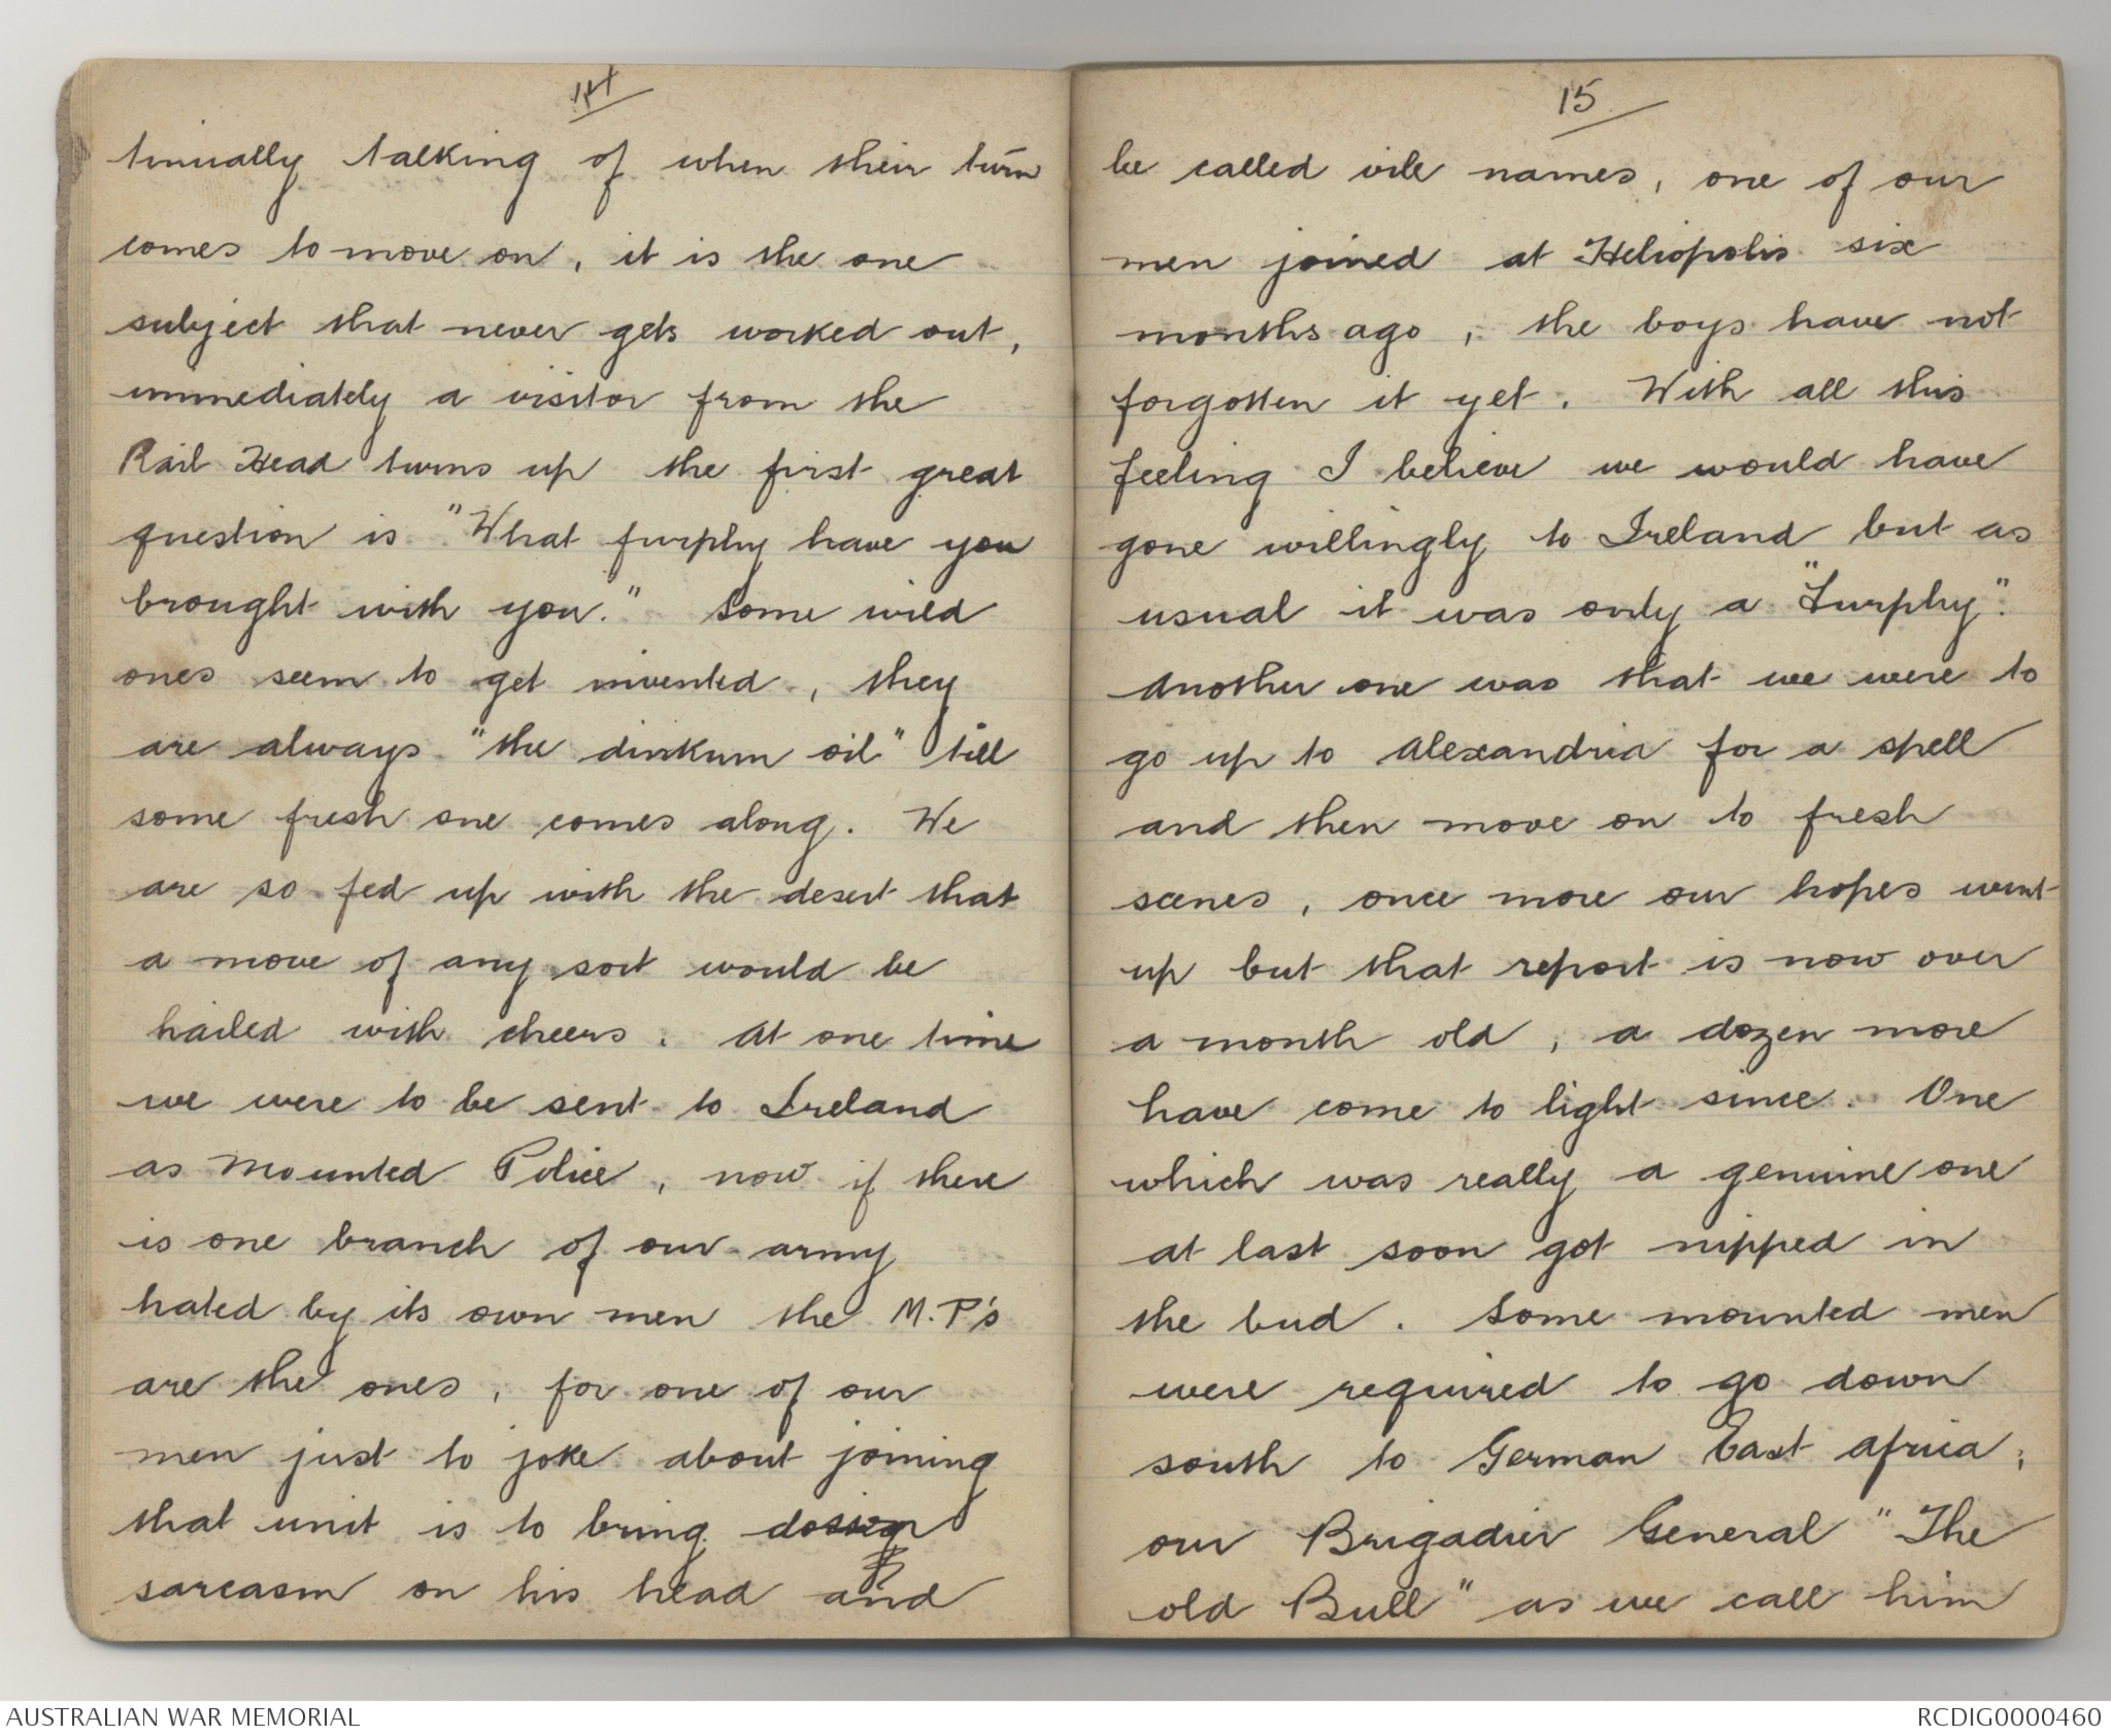 14
tinually talking of when their turn
comes to move on, it is the one
subject that never gets worked out,
immediately a visitor from the
Rail Head turns up the first great
question is "What furphy have you
brought with you." Some wild
ones seem to get invented, they
are always "the dinkum oil" till
some fresh one comes along. We
are so fed up with the desert that
a move of any sort would be
hailed with cheers. At one time
we were to be sent to Ireland
as Mounted Police, now if there
is one branch of our army
hated by its own men the M.P's
are the ones, for one of our
men just to joke about joining
that unit is to bring
sarcasm on his head and
15
be called vile names, one of our
men joined at Heliopolis six
months ago, the boys have not
forgotten it yet. With all this
feeling I believe we would have
gone willingly to Ireland but as
usual it was only a "Furphy".
Another one was that we were to
go up to Alexandria for a spell
and then move on to fresh
scenes, once more our hopes went
up but that report is now over
a month old, a dozen more
have come to light since. One
which was really a genuine one
at last soon got nipped in
the bud. Some mounted men
were required to go down
south to German East Africa;
our Brigadier General "The
old Bull" as we call him
AUSTRALIAN WAR MEMORIAL
RCDIG0000460